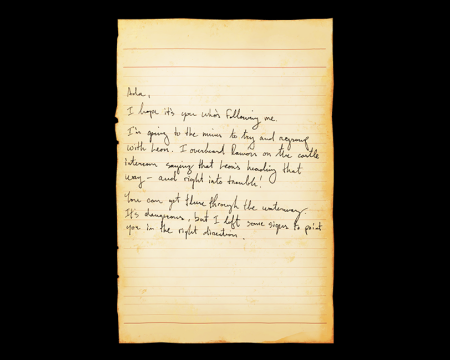 Ada,
I hope it's you who's following me.
I'm going to the mines to try and regroup
with Leon. I overheard Ramon on the castle
intercom saying that Leon's heading that
way – and right into trouble!
You can get there through the waterway.
It's dangerous, but I left some signs to point
you in the right direction.